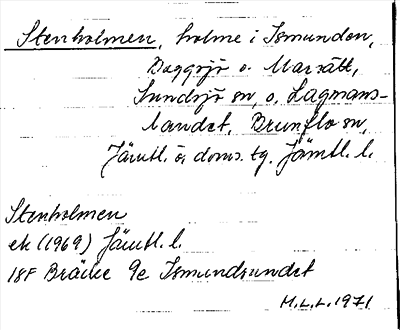 Stenholmen, holme i Ismunden,
Boggsjö o. Marsätt,
Sundsjö sn, o. Lagmans-
landet, Brunflo sn,
Jämtl. ö. doms. tg. Jämtl. l.
Stenholmen
ek (1969) Jämtl. l.
18F Bräcke 9e Ismundsundet
M.L.L. 1971